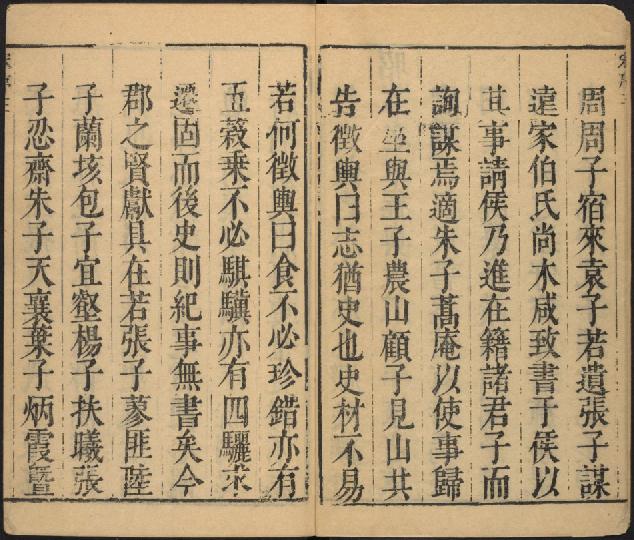 周周子宿來袁子若遺張子謀
遠家伯氏尚木咸致書于侯以
其事請侯乃進在籍諸君子而
詢謀焉適朱子蒿庵以使事歸
在坐與王子農山顧子見山共
告徵輿曰志猶史也史材不易
若何徵輿曰食不必珍錯亦有
五穀乗不必騏驥亦有四驪求
遷固而後史則紀事無書矣今
郡之賢獻具在若張子蓼匪陸
子蘭垓包子宜壑楊子扶曦張
子忍齋朱子天襄葉子炳霞暨